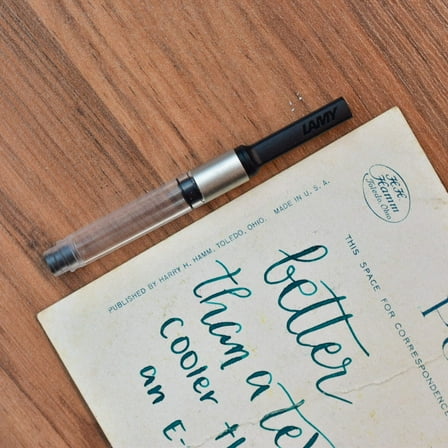 LAMY
H.H.
Hamm
Toledo, Ohio
PUBLISHED BY HARRY H. HAMM, TOLEDO, OHIO. MADE IN U. S. A.
THIS SPACE FOR CORRESPONDENCE
better
than a
cooler
an E-